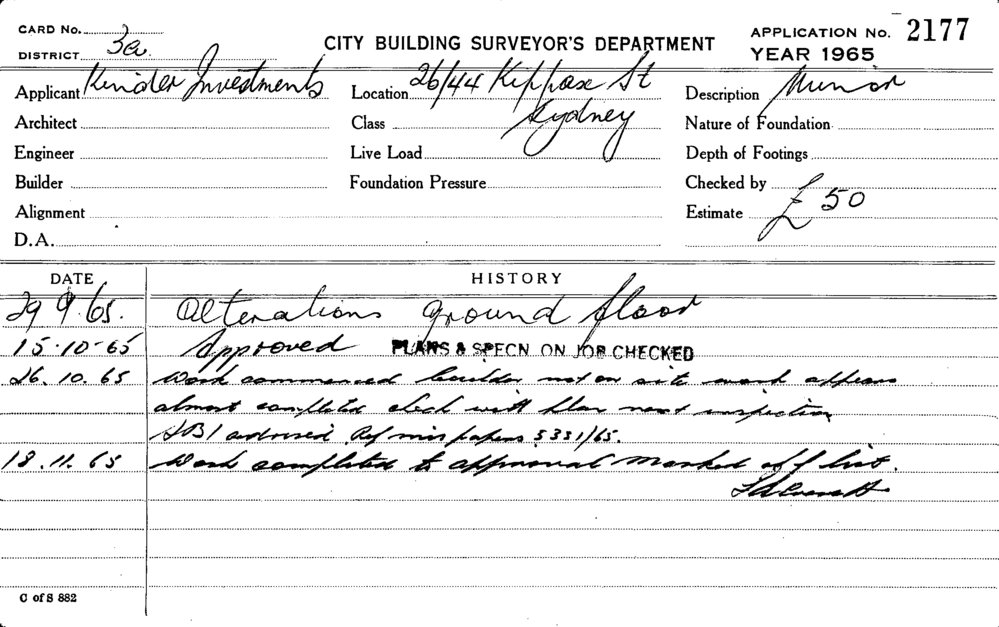 CARD No.
DISTRICT 3a.
CITY BUILDING SURVEYOR'S DEPARTMENT
APPLICATION No. 2177
YEAR 1965
Applicant Kinder Investments
Location 26/44 Kippax St
Sydney
Description Minor
Architect
Class
Nature of Foundation
Engineer
Live Load
Depth of Footings
Builder
Foundation Pressure
Checked by
Alignment
Estimate £ 50
D.A.
DATE HISTORY
29 9.65. Alterations ground floor
15.10-65 Approved PLANS & SPECN ON JOB CHECKED
26.10.65 Work commenced builder not on site work appears
almost completed check with plan next inspection
advised Ref mis papers 5331/65.
18.11.65 Work completed to approval marked off list.
C of S 882